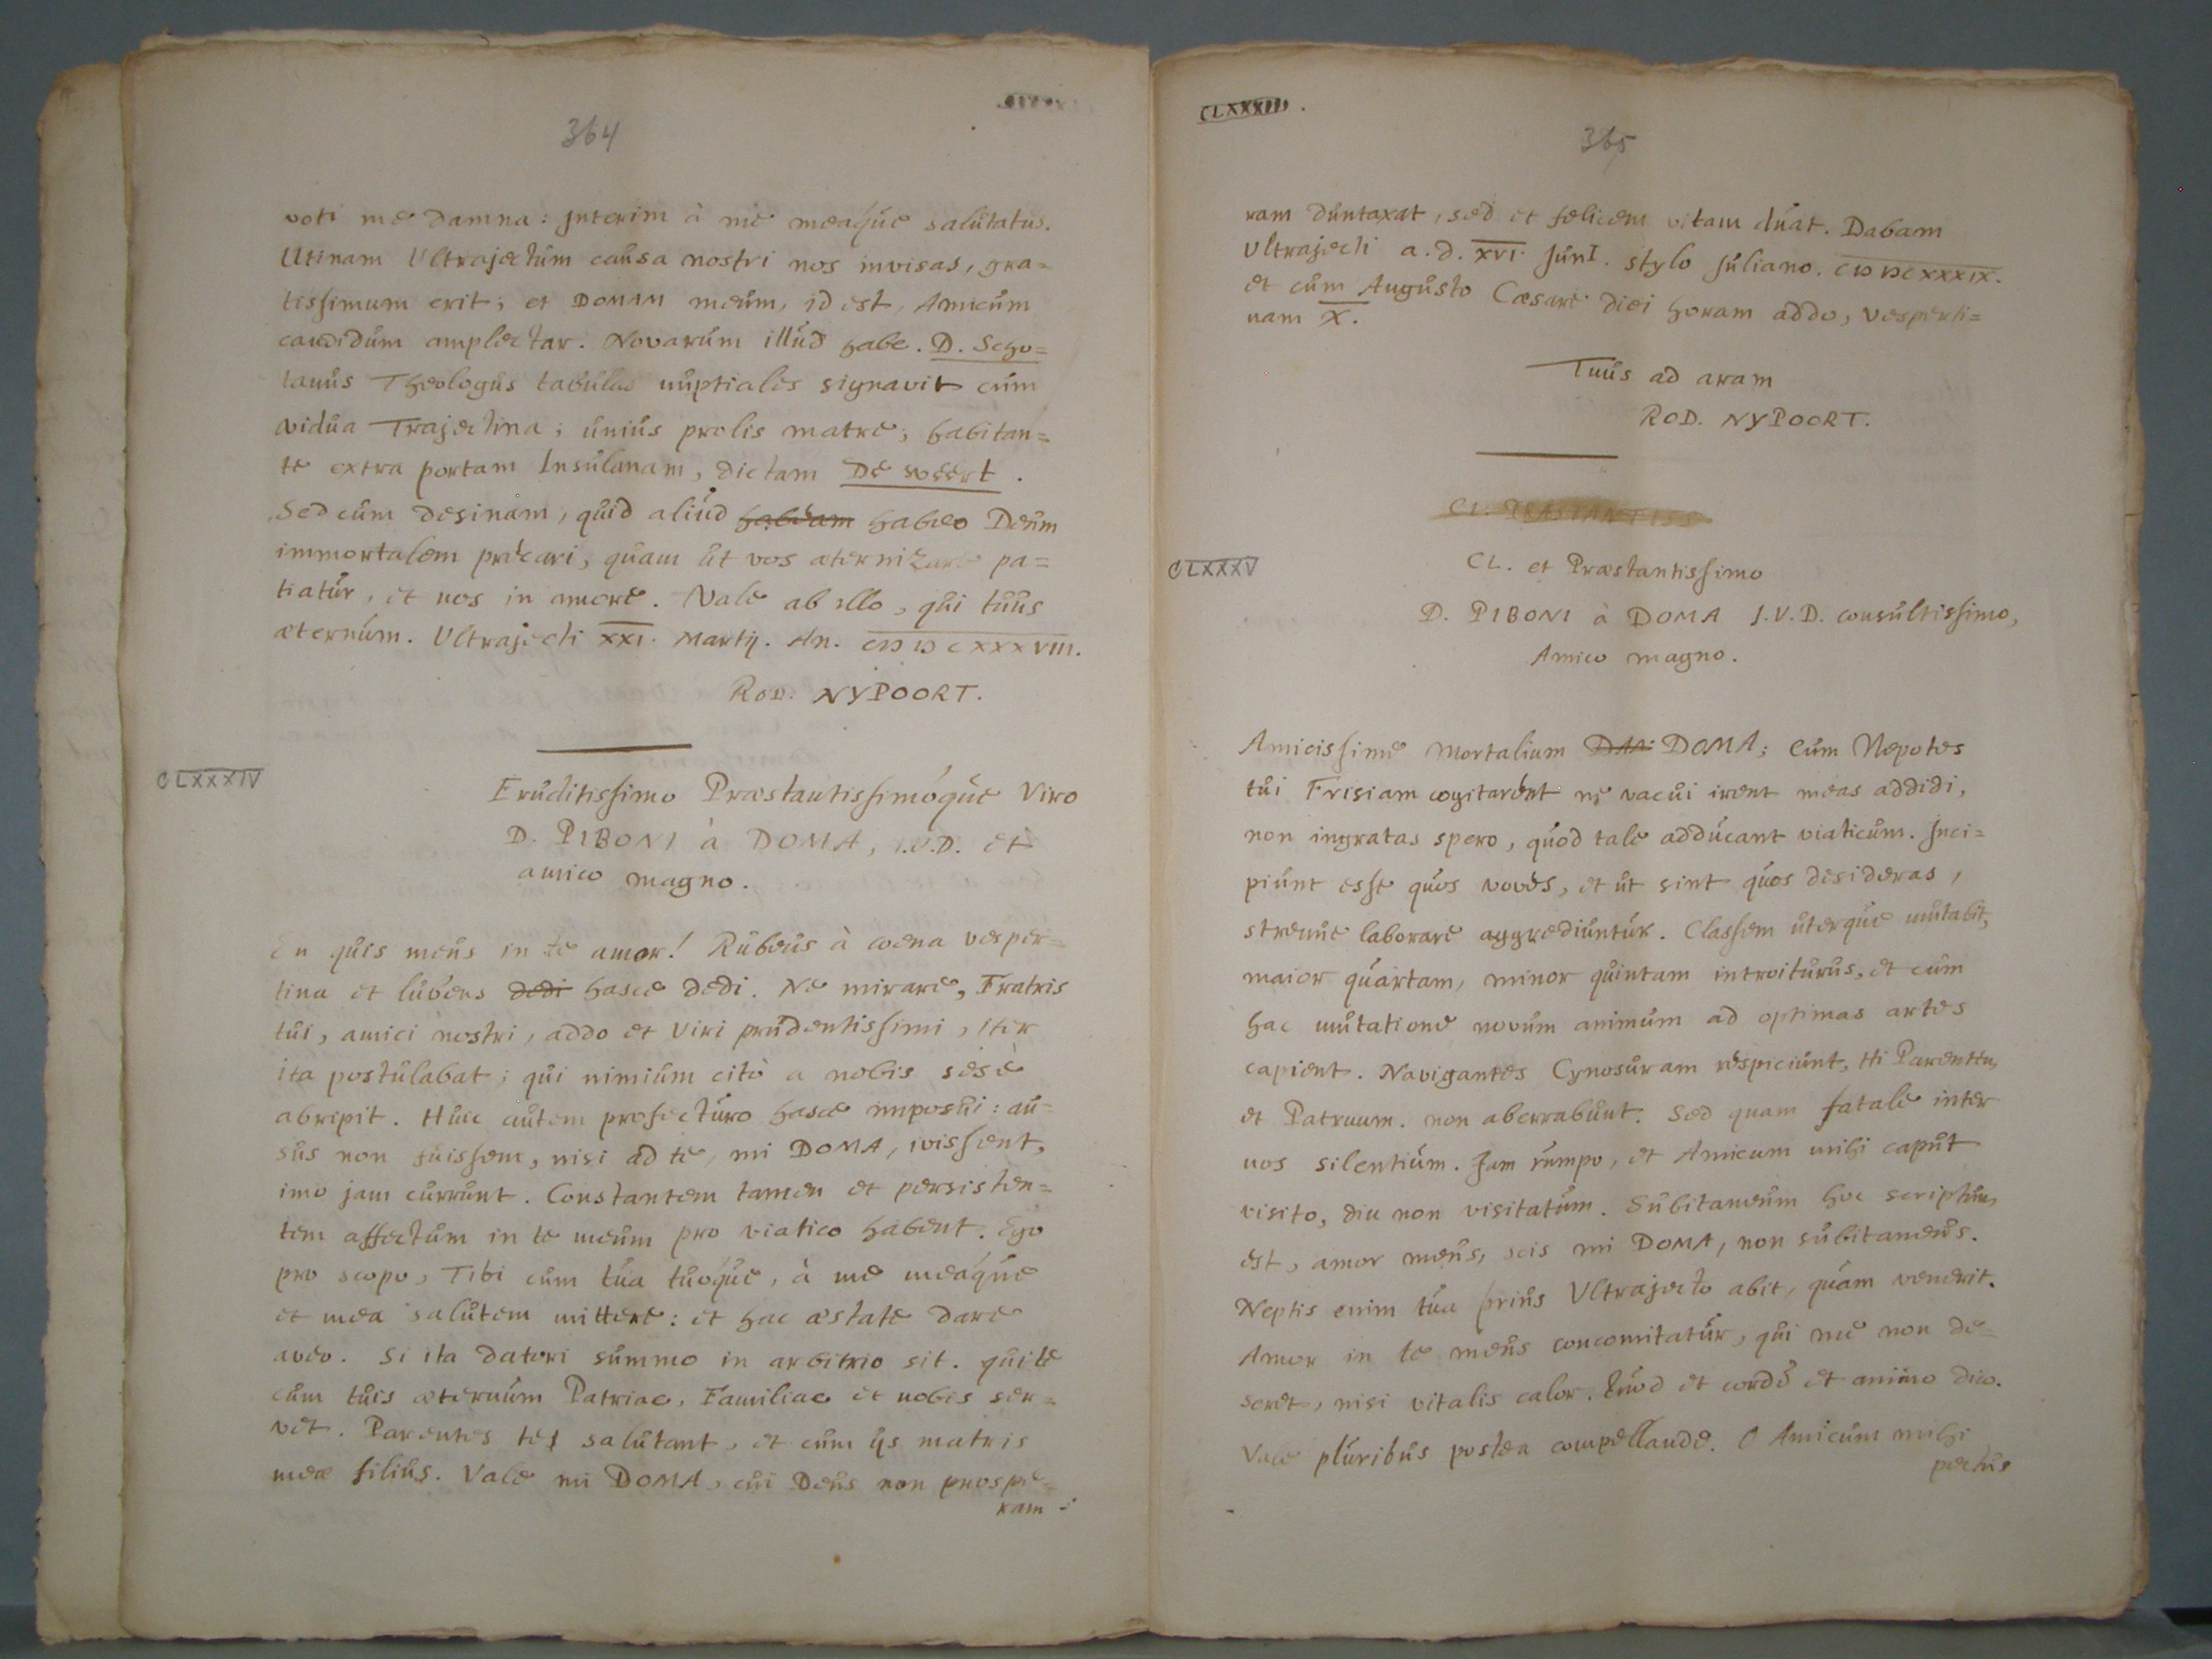 364
voti me damna: Interim à me meaque salutatus.
Utinam Ultrajectum causa nostri nos invisas, gra=
tissimum erit; et DOMAM meum, id est, Amicum
candidum amplectar. Novarum illud habe. D. Scho=
tanus Theologus tabulas nuptiales signavit cum
vidua Trajectina; unius prolis matre; habitan=
te extra portam Insulanam, dictam De weert.
Sed cum desinam, quid aliud habeam habeo Deum
immortalem precari, quam ut vos aeternizare pa=
tiatur, et nos in amore. Vale ab illo, qui tuus
æternum. Ultrajecti XXI. Martij. An. CIƆ IƆ CXXXVIII.
ROD. NYPOORT.
CLXXXIV
Eruditissimo Præstantissimóque Viro
D. PIBONI à DOMA, I.V.D. et
amico magno.
En quis meus in te amor! Rubeus à coena vesper=
tina et lubens dedi hasce dedi. Ne mirare, Fratris
tui, amici nostri, addo et Viri prudentissimi, iter
ita postulabat; qui nimium citò a nobis sesè
abripit. Huic autem profecturo hasce imposui: au=
sus non fuissem, nisi ad te, mi DOMA, ivissent,
imo jam currunt. Constantem tamen et persisten=
tem affectum in te meum pro viatico habent. Ego
pro scopo, Tibi cum tua tuoque, à me meáque
et mea salutem mittere: et hac æstate dare
aveo. Si ita datori summo in arbitrio sit. qui te
cum tuis æternum Patriae, Familiae et nobis ser=
vet. Parentes te salutant, et cum ijs matris
meæ filius. Vale mi DOMA, cui Deus non prospe=
ram
CLXXXIII.
365
ram duntaxat, sed et felicem vitam duat. Dabam
Ultrajecti a.d. XVI. JunI. stylo Juliano. CIƆ IƆC XXXIX.
et cum Augusto Cæsare diei horam addo, vesperti=
nam X.
Tuus ad aram
ROD. NYPOORT.
CL. PRÆSTANTISS
CLXXXV
CL. et Præstantissimo
D. PIBONI à DOMA I.V.D. consultissimo,
Amico magno.
Amicissime mortalium DOMA; Cum Nepotes
tui Frisiam cogitarent ne vacui irent meas addidi,
non ingratas spero, quod tale adducant viaticum. Inci=
piunt esse quos voves, et ut sint quos desideras,
strenue laborare aggrediuntur. Classem uterque mutabit,
maior quartam, minor quintam introiturus, et cum
hac mutatione novum animum ad optimas artes
capient. Navigantes Cynosuram respiciunt, Hi Parentem
et Patruum. non aberrabunt. Sed quam fatale inter
nos silentium. Jam rumpo, et Amicum mihi caput
visito, diu non visitatum. Subitaneum hoc scriptum
est, amor meus, scis mi DOMA, non subitaneus.
Neptis enim tua prius Ultrajecto abit, quam venerit.
Amor in te meus concomitatur, qui me non de=
seret, nisi vitalis calor. Quod et corde et animo dico.
Vale pluribus postea compellande. O Amicum mihi
pectus